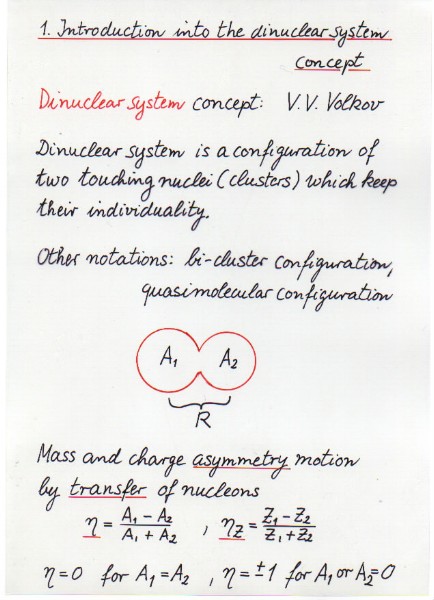 1. Introduction into the dinuclear system
concept
Dinuclear system concept: V.V. Volkov
Dinuclear system is a configuration of
two touching nuclei (clusters) which keep
their individuality.
Other notations: bi-cluster configuration,
quasimolecular configuration
A₁ A₂
R
Mass and charge asymmetry motion
by transfer of nucleons
η = (A₁ - A₂)/(A₁ + A₂) , η_Z = (Z₁ - Z₂)/(Z₁ + Z₂)
η = 0 for A₁ = A₂ , η = ±1 for A₁ or A₂ = 0